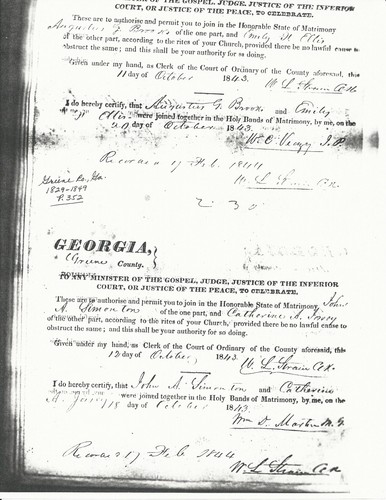 MINISTER OF THE GOSPEL, JUDGE, JUSTICE OF THE INFERIOR
COURT, OR JUSTICE OF THE PEACE, TO CELEBRATE.
These are to authorise and permit you to join in the Honorable State of Matrimony
Augustus G Brooks of the one part, and Emily Ellis
of the other part, according to the rites of your Church, provided there be no lawful cause to
obstruct the same; and this shall be your authority for so doing.
Given under my hand, as Clerk of the Court of Ordinary of the County aforesaid, this
11 day of October 1843.
W L Strain
I do hereby certify, that Augustus G Brooks and Emily
Ellis were joined together in the Holy Bands of Matrimony, by me, on the
day of October 1843.
J.P.
Recorded 17 Feb. 1844
W L Strain
Greene Co, Ga.
1829-1849
P. 352
GEORGIA,
Greene County.
TO ANY MINISTER OF THE GOSPEL, JUDGE, JUSTICE OF THE INFERIOR
COURT, OR JUSTICE OF THE PEACE, TO CELEBRATE.
These are to authorise and permit you to join in the Honorable State of Matrimony John
A. Simonton of the one part, and Catherine
of the other part, according to the rites of your Church, provided there be no lawful cause to
obstruct the same; and this shall be your authority for so doing.
Given under my hand, as Clerk of the Court of Ordinary of the County aforesaid, this
12 day of October, 1843.
W L Strain
I do hereby certify, that John A. Simonton and Catherine
were joined together in the Holy Bands of Matrimony, by me, on the
18 day of October 1843.
Wm D. Martin M.G.
Recorded 17 Feb 1844
W L Strain